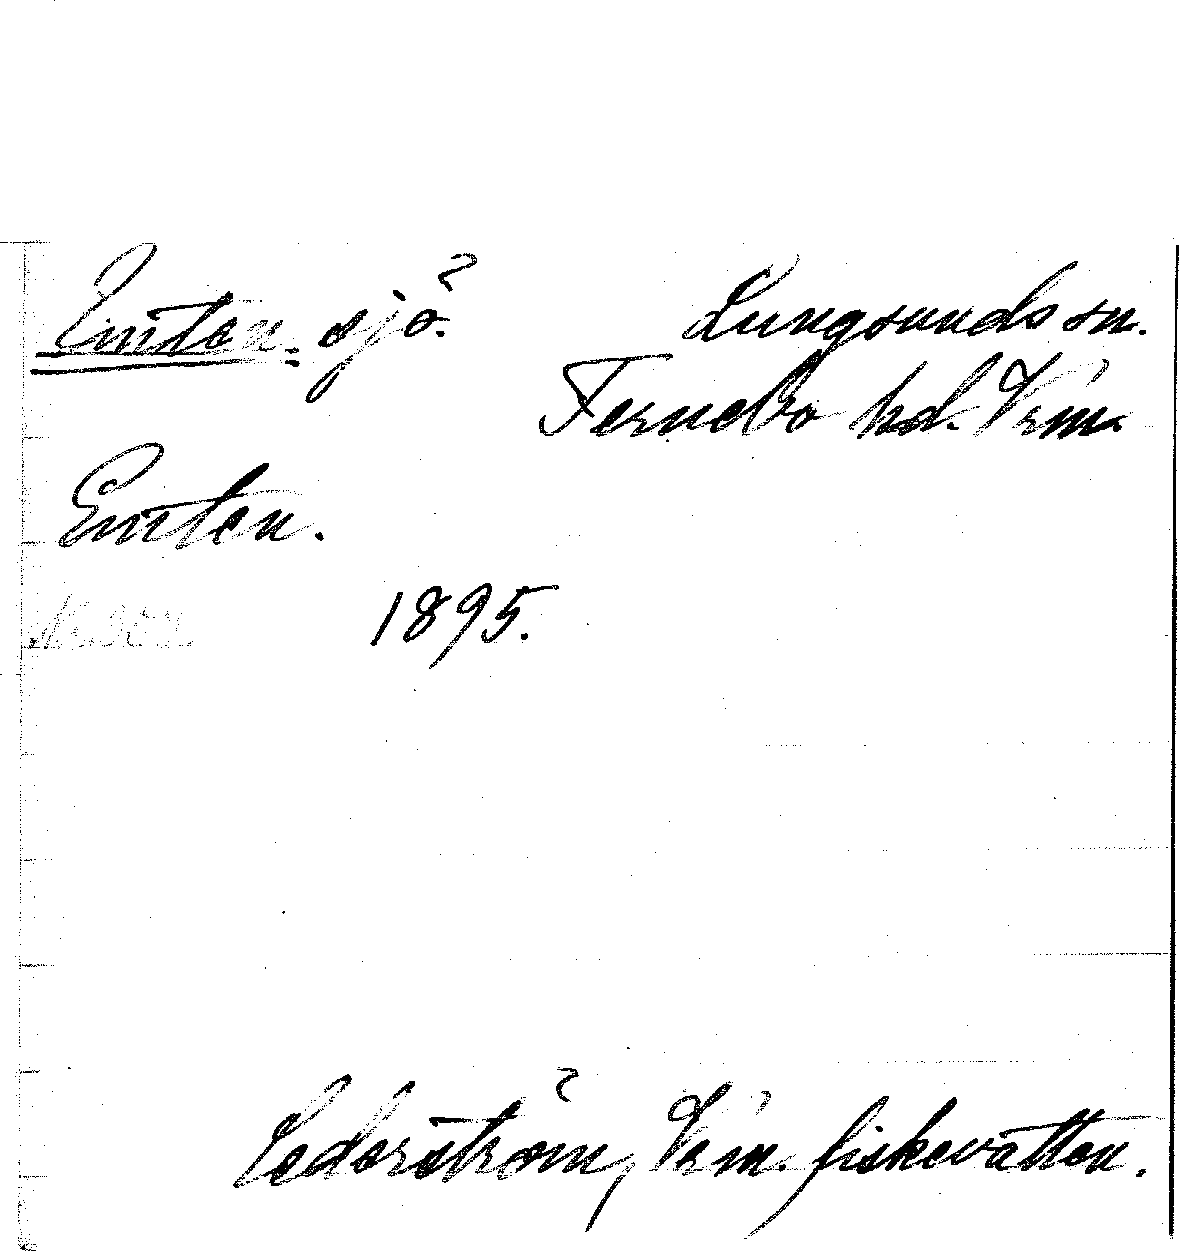 Emten. sjö. Lungsunds sn.
Fernebo hd. Vrm.
Emten.
1895.
Cederström, Vrm. fiskevatten.